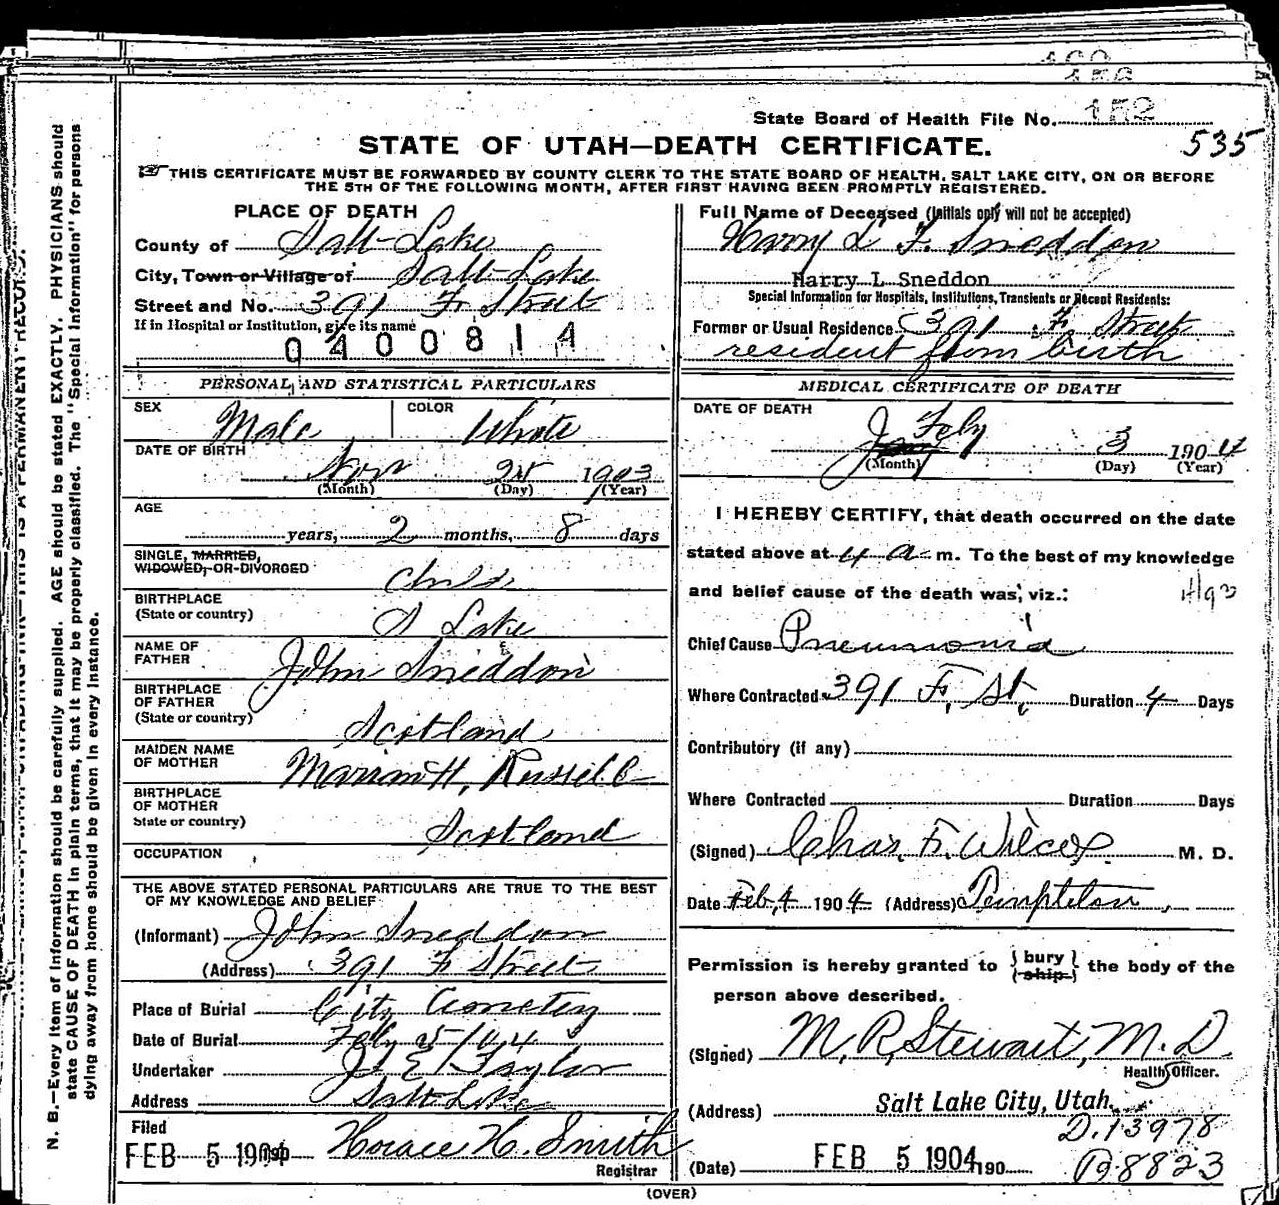 152
State Board of Health File No.
535
STATE OF UTAH—DEATH CERTIFICATE.
THIS CERTIFICATE MUST BE FORWARDED BY COUNTY CLERK TO THE STATE BOARD OF HEALTH, SALT LAKE CITY, ON OR BEFORE
THE 5TH OF THE FOLLOWING MONTH, AFTER FIRST HAVING BEEN PROMPTLY REGISTERED.
PLACE OF DEATH
County of Salt Lake
City, Town or Village of Salt Lake
Street and No. 391 F Street
If in Hospital or Institution, give its name
0400814
PERSONAL AND STATISTICAL PARTICULARS
SEX Male COLOR White
DATE OF BIRTH
Nov 25 1903
(Month) (Day) (Year)
AGE
years, 2 months, 8 days
SINGLE, MARRIED,
WIDOWED, OR DIVORCED Child
BIRTHPLACE
(State or country) S Lake
NAME OF
FATHER John Sneddon
BIRTHPLACE
OF FATHER
(State or country) Scotland
MAIDEN NAME
OF MOTHER Marrian H. Russell
BIRTHPLACE
OF MOTHER
State or country) Scotland
OCCUPATION
THE ABOVE STATED PERSONAL PARTICULARS ARE TRUE TO THE BEST
OF MY KNOWLEDGE AND BELIEF
(Informant) John Sneddon
(Address) 391 F Street
Place of Burial City Cemetery
Date of Burial Feby 5/04
Undertaker J. E. Taylor
Address Salt Lake
Filed
FEB 5 1904 Horace H. Smith
Registrar
Full Name of Deceased (Initials only will not be accepted)
Harry L F. Sneddon
Harry L Sneddon
Special Information for Hospitals, Institutions, Transients or Recent Residents:
Former or Usual Residence 391 F Street
resident from birth
MEDICAL CERTIFICATE OF DEATH
DATE OF DEATH
Feby 3 1904
(Month) (Day) (Year)
I HEREBY CERTIFY, that death occurred on the date
stated above at 4 a m. To the best of my knowledge
and belief cause of the death was, viz.:
Chief Cause Pneumonia
Where Contracted 391 F. St. Duration 4 Days
Contributory (if any)
Where Contracted Duration Days
(Signed) Chas. F. Wilcox M. D.
Date Feb 4 1904 (Address) Templeton
Permission is hereby granted to { bury
ship } the body of the
person above described.
(Signed) M. R. Stewart, M. D.
Health Officer.
(Address) Salt Lake City, Utah.
D. 13978
(Date) FEB 5 1904 190
B 8823
(OVER)
N. B.—Every item of information should be carefully supplied. AGE should be stated EXACTLY. PHYSICIANS should
state CAUSE OF DEATH in plain terms, that it may be properly classified. The "Special Information" for persons
dying away from home should be given in every instance.